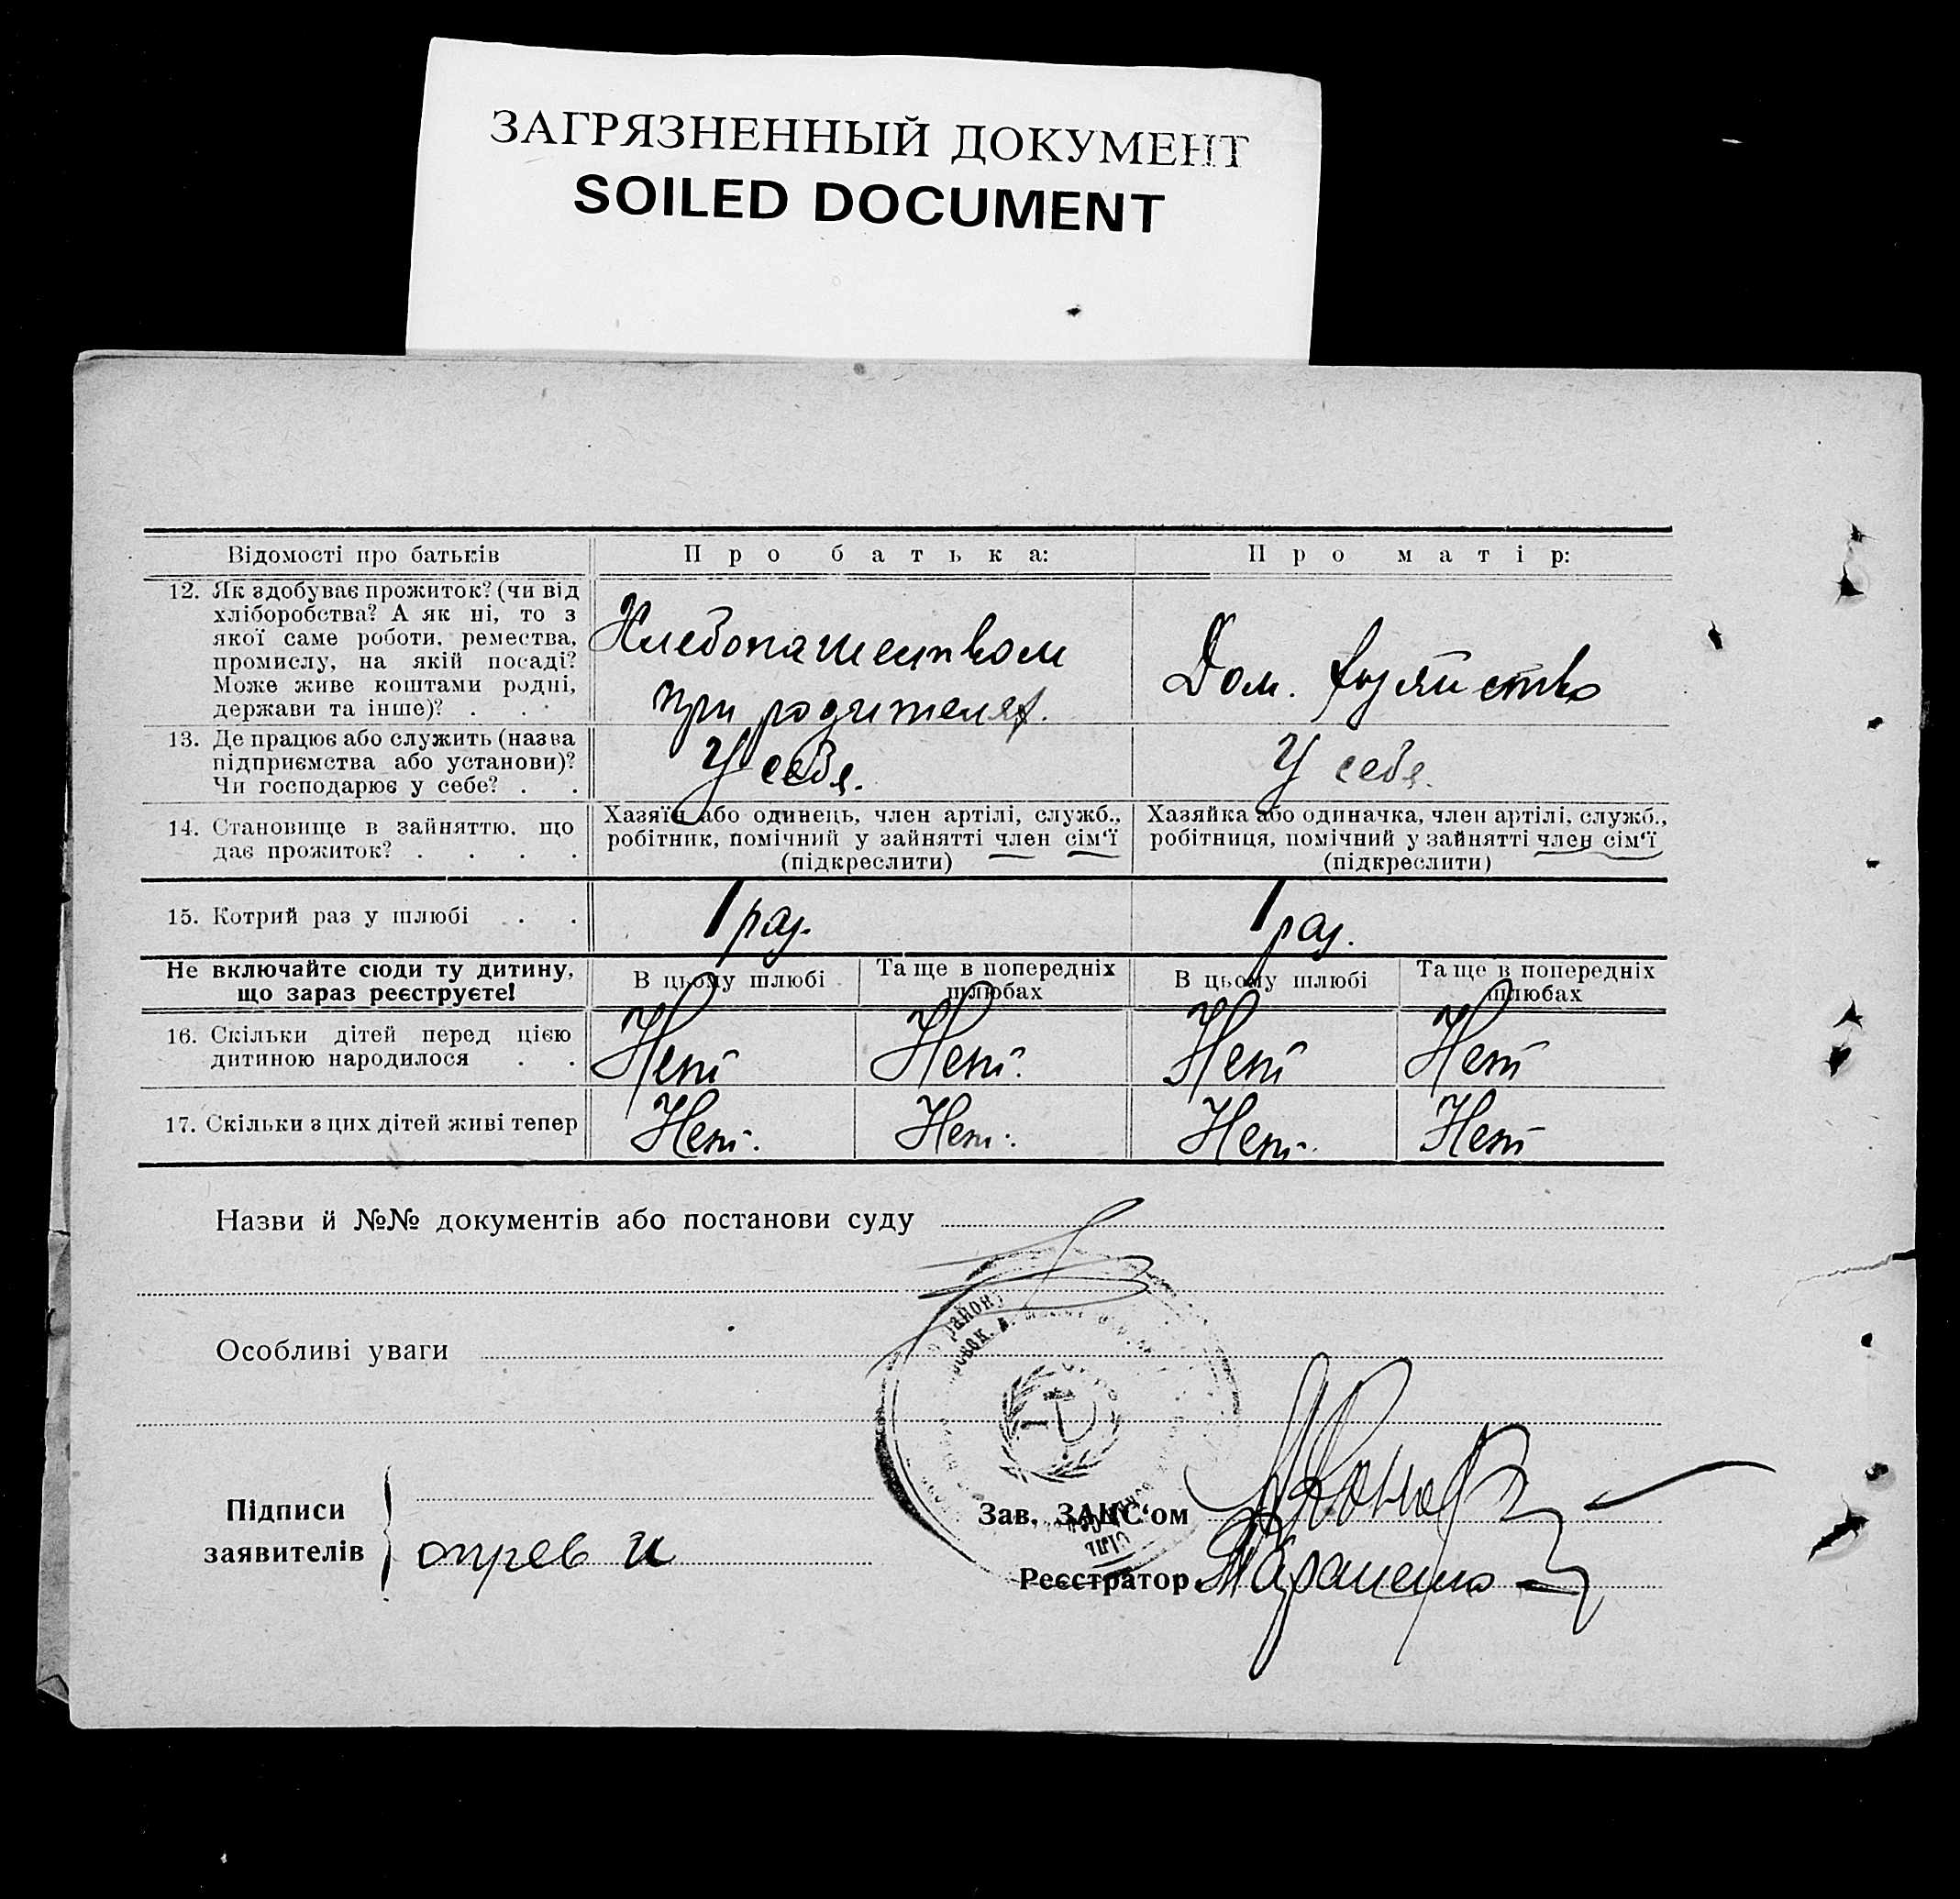 ЗАГРЯЗНЕННЫЙ ДОКУМЕНТ
SOILED DOCUMENT
Відомості про батьків
Про батька:
Про матір:
12. Як здобуває прожиток? (чи від
хліборобства? А як ні, то з
якої саме роботи, ремества,
промислу, на якій посаді?
Може живе коштами родні,
держави та інше)? . . .
Хлебопашеством
при родителях.
Дом. хозяйство
13. Де працює або служить (назва
підприємства або установи)?
Чи господарює у себе? . .
У себя.
У себя.
14. Становище в зайняттю, що
дає прожиток? . . . .
Хазяїн або одинець, член артілі, служб.,
робітник, помічний у зайнятті член сім‘ї
(підкреслити)
Хазяйка або одиначка, член артілі, служб.,
робітниця, помічний у зайнятті член сім‘ї
(підкреслити)
15. Котрий раз у шлюбі . .
1 раз.
1 раз.
Не включайте сюди ту дитину,
що зараз реєструєте!
В цьому шлюбі
Та ще в попередніх
шлюбах
В цьому шлюбі
Та ще в попередніх
шлюбах
16. Скільки дітей перед цією
дитиною народилося . .
Нет
Нет.
Нет
Нет
17. Скільки з цих дітей живі тепер
Нет.
Нет.
Нет.
Нет
Назви й №№ документів або постанови суду
Особливі уваги
району
Підписи
заявителів
Зав. ЗАЦС‘ом
Реєстратор